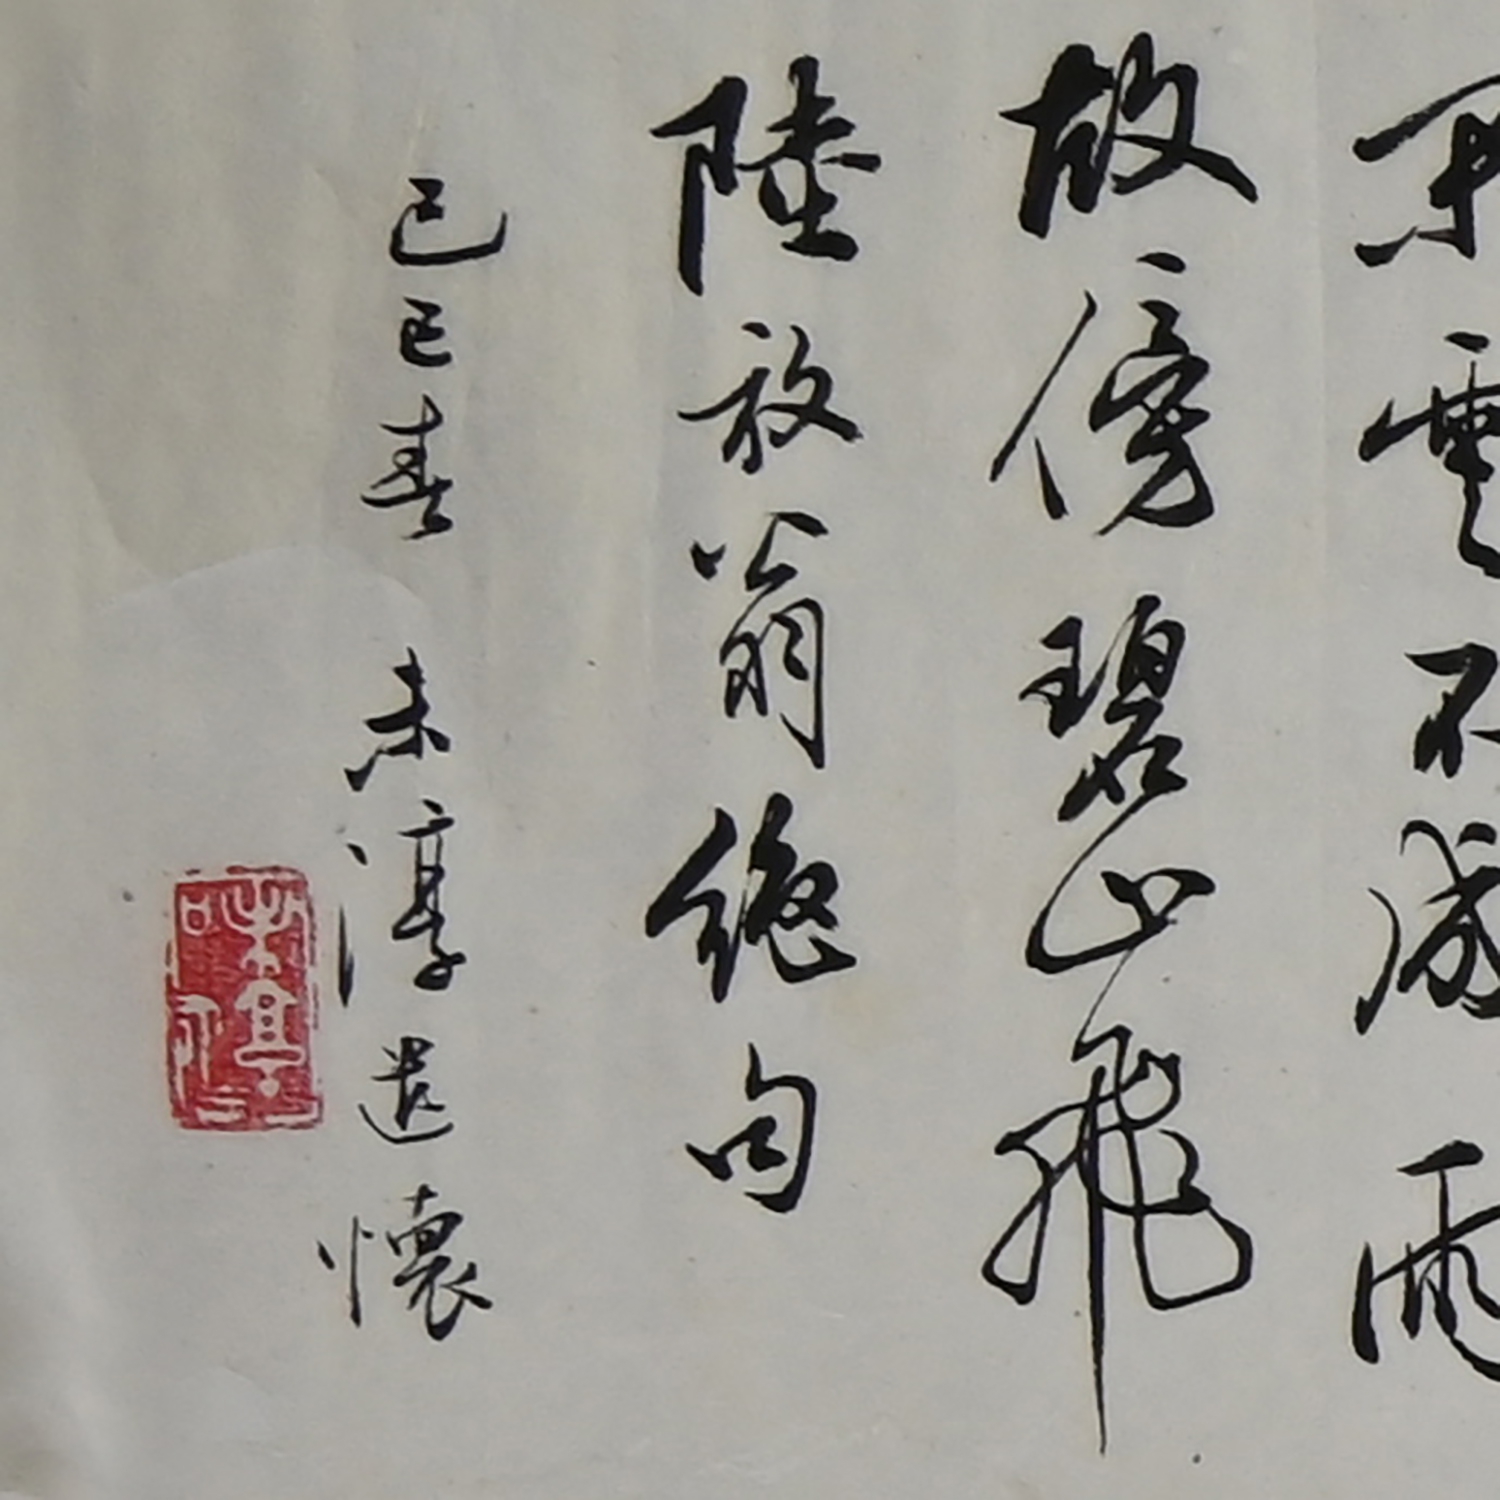 閑雲不成雨
故傍碧山飛
陸放翁絕句
己巳春 未淳遣懷